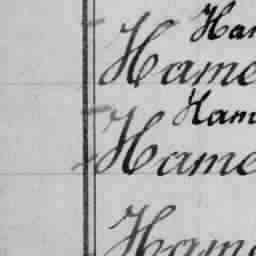 Ham
Hame
Hami
Hame
Hame